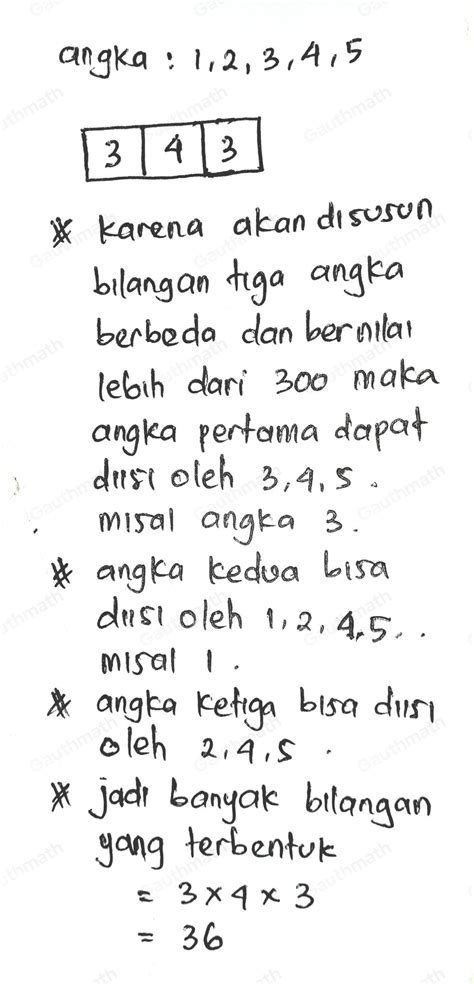 angka : 1, 2, 3, 4, 5
3 4 3
* karena akan disusun
bilangan tiga angka
berbeda dan bernilai
lebih dari 300 maka
angka pertama dapat
diisi oleh 3, 4, 5.
misal angka 3.
* angka kedua bisa
diisi oleh 1, 2, 4, 5..
misal 1.
* angka ketiga bisa diisi
oleh 2, 4, 5.
* jadi banyak bilangan
yang terbentuk
= 3 x 4 x 3
= 36